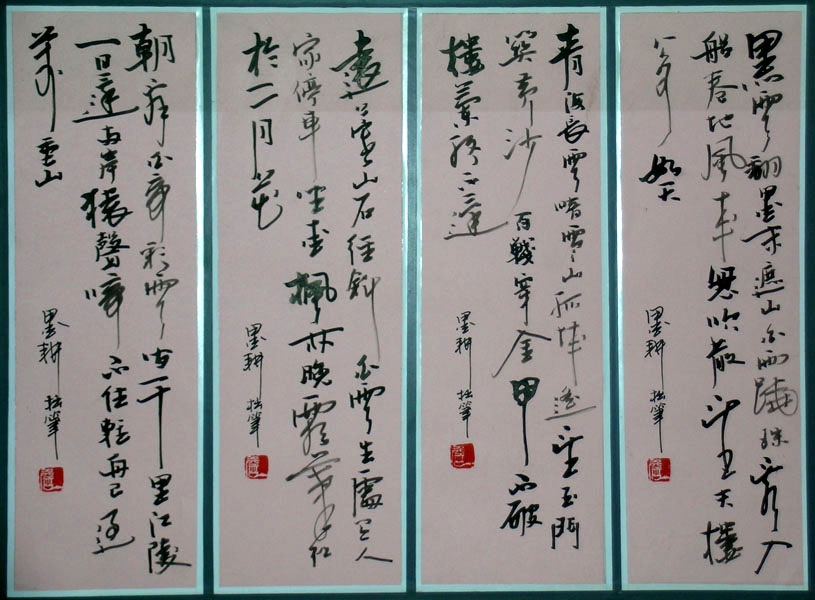 黑雲翻墨未遮山白雨跳珠亂入
船卷地風來忽吹散望湖樓
下水如天
墨耕 拙筆
青海長雲暗雪山孤城遙望玉門
關黃沙百戰穿金甲不破
樓蘭終不還
墨耕 拙筆
遠上寒山石徑斜白雲生處有人
家停車坐愛楓林晚霜葉紅
於二月花
墨耕 拙筆
朝辭白帝彩雲間千里江陵
一日還兩岸猿聲啼不住輕舟已過
萬重山
墨耕 拙筆